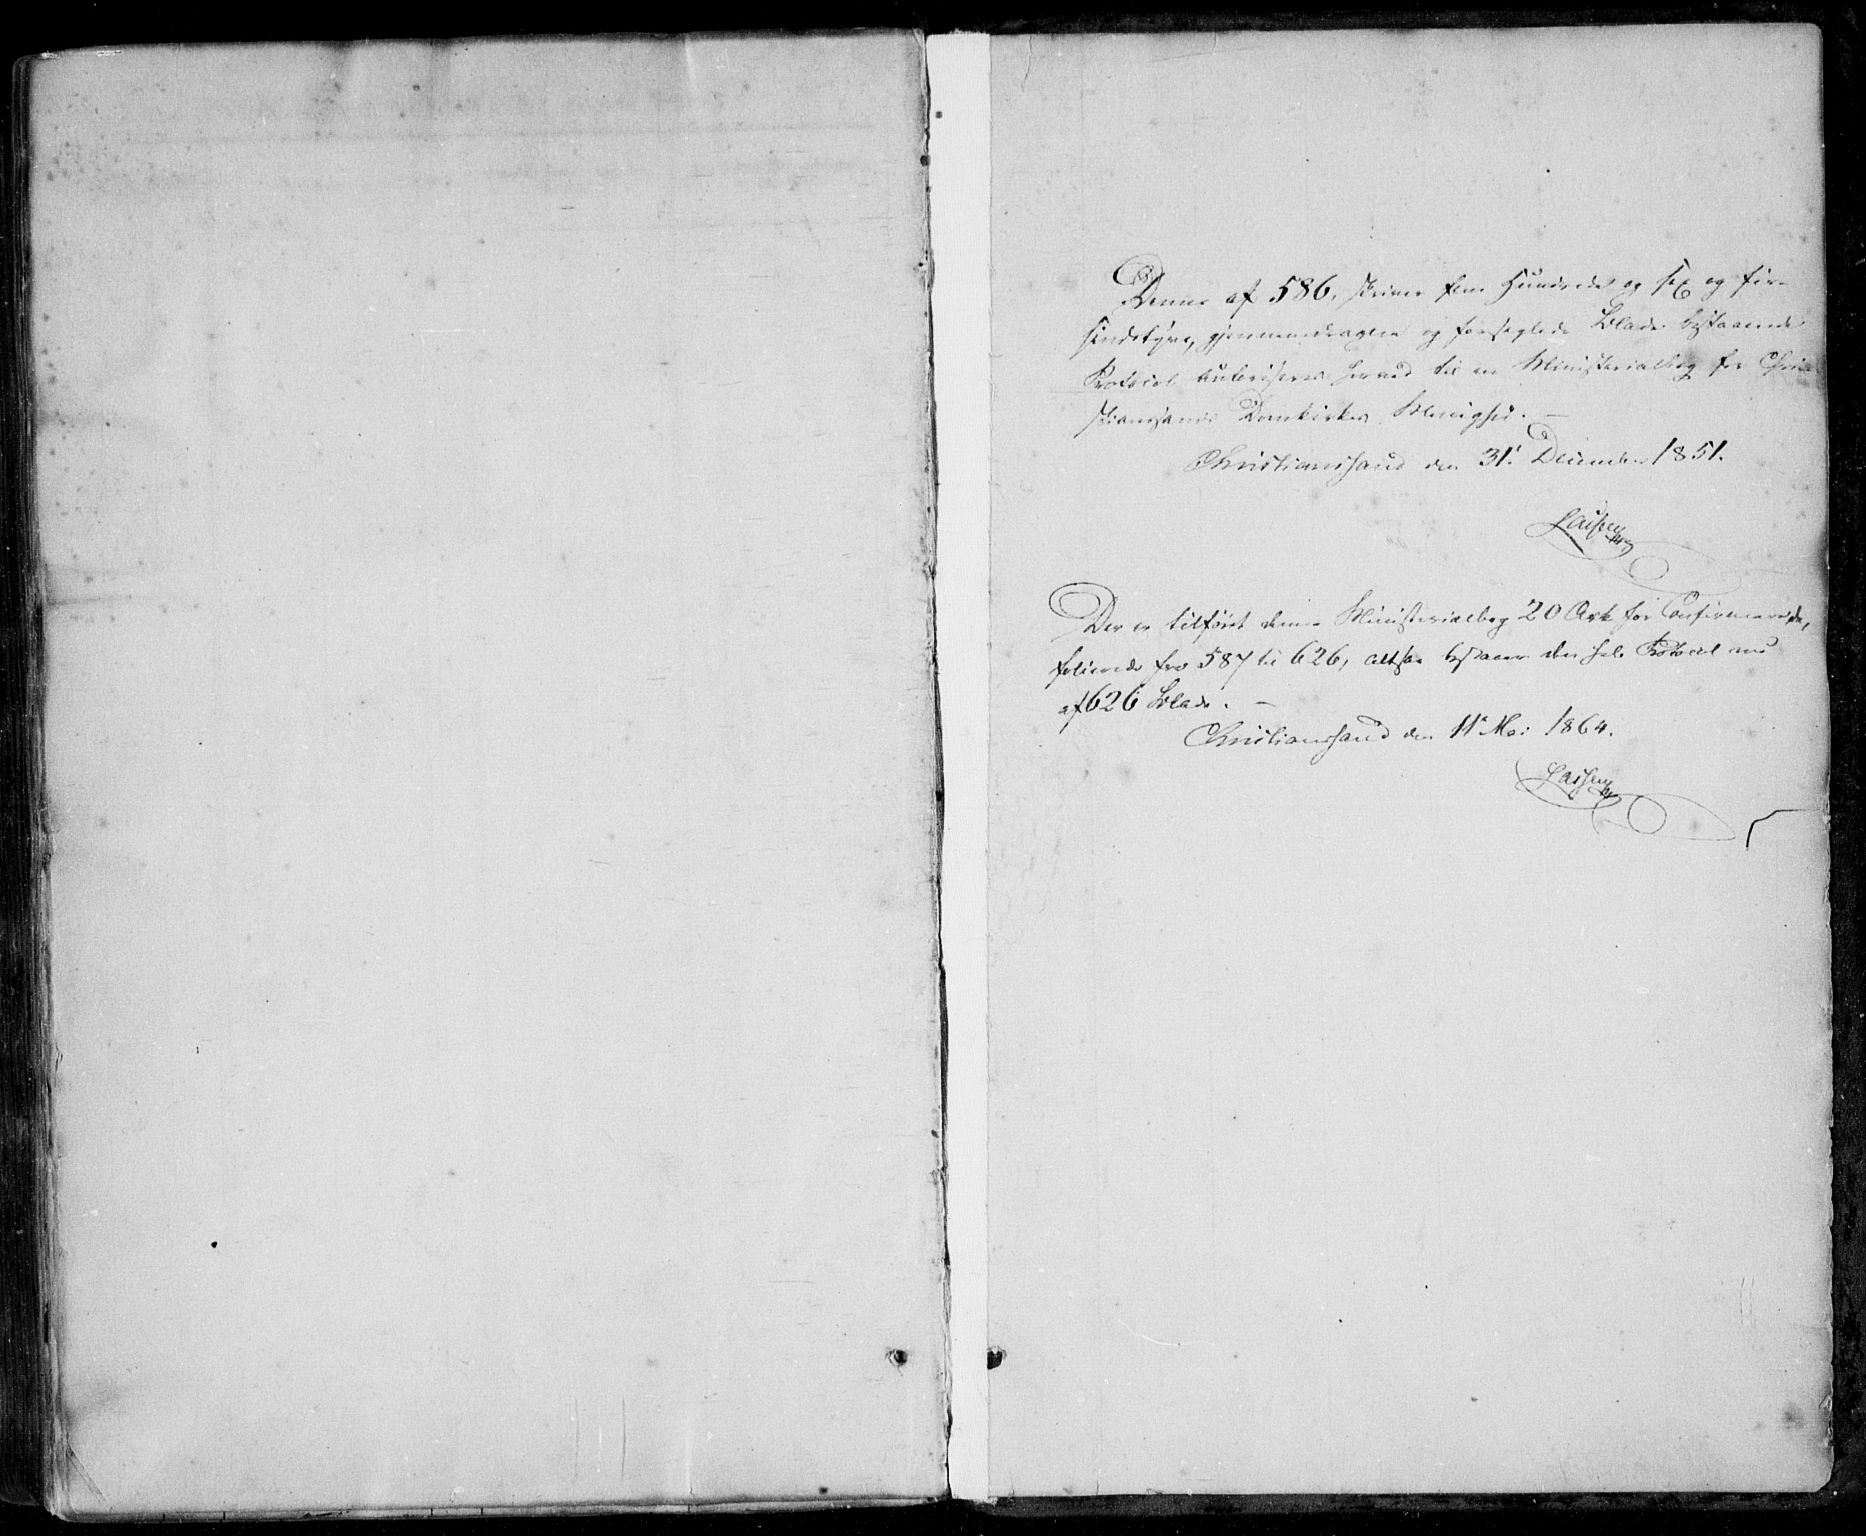 Denne af 586, skriver fem Hundrede og sex og fir-
sindstyve, gjennemdragne og forseglede Blade bestaaende
Protocol autoriseres herved til en Ministerialbog for Chri-
stianssands Domkirkes Menighed. —
Christianssand den 31. December 1851.
Lassen
Der er tilføiet denne Ministerialbog 20 Ark for Confirmerede,
folierede fra 587 til 626, altsaa bestaaer den hele Protocol nu
af 626 Blade. —
Christianssand den 11 Mai 1864.
Lassen